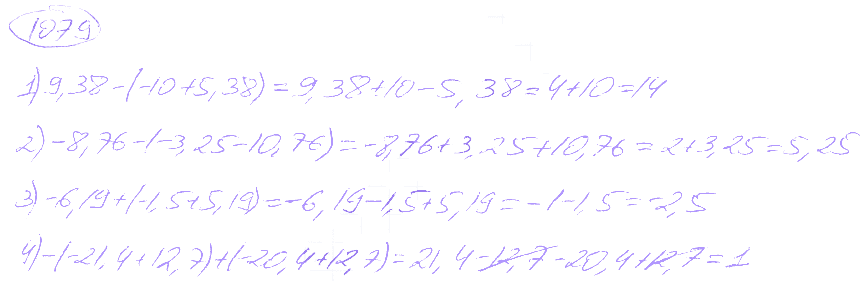 1079
1) 9,38-(-10+5,38)=9,38+10-5,38=4+10=14
2) -8,76-(-3,25-10,76)=-8,76+3,25+10,76=2+3,25=5,25
3) -6,19+(-1,5+5,19)=-6,19-1,5+5,19=-1-1,5=-2,5
4) -(-21,4+12,7)+(-20,4+12,7)=21,4-12,7-20,4+12,7=1